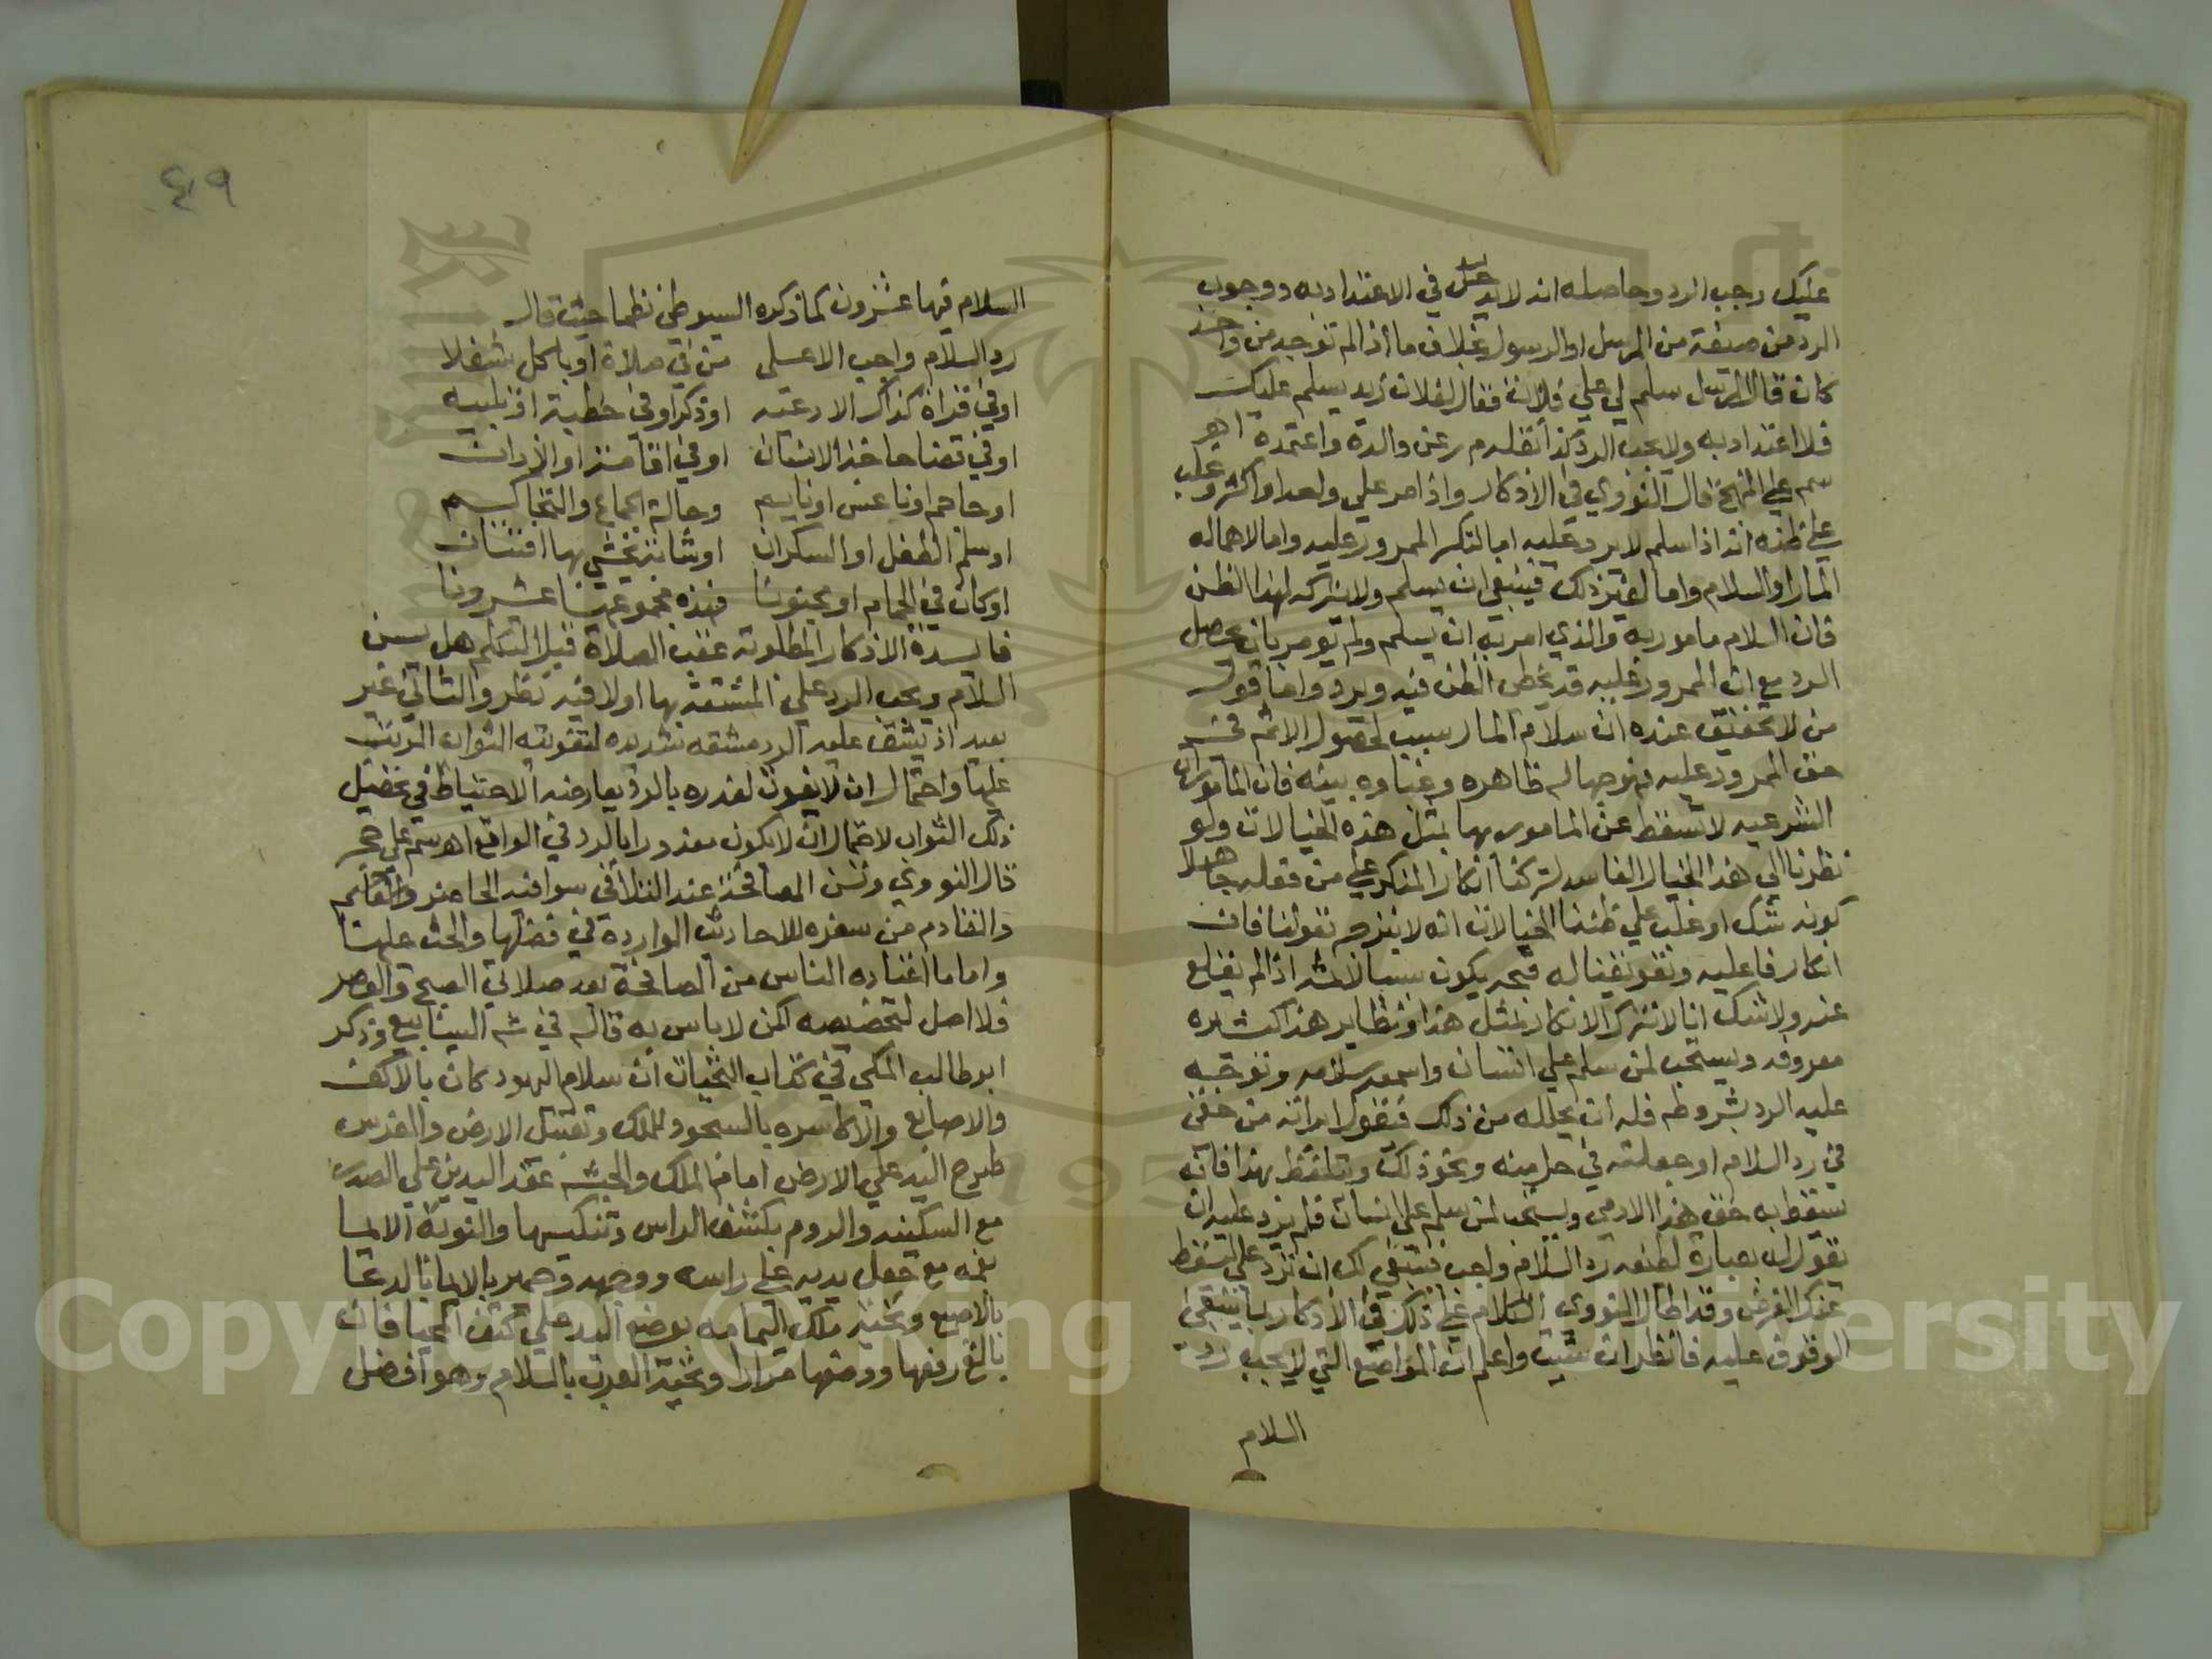 عليك وجب الرد وحاصله انه لابد في الاعتداد به ووجوب
الرد من صيغة من المرسل او الرسول بخلاف ما اذا لم توجد من واحد
كان قال المرسل سلم لي علي فلان فقال لفلان زيد يسلم عليك
فلا اعتداد به ولا يجب الرد كذا نقله م ر عن والده واعتمده اهـ
سم علي المنهج قال النووي في الاذكار واذا مر علي واحد او اكثر وغلب
علي ظنه انه اذا سلم لا يرد عليه اما لتكبر الممرور عليه واما لاهماله
المار او السلام واما لغير ذلك فينبغي ان يسلم ولا يتركه لهذا الظن
فان السلام مامور به والذي امر به ان يسلم ولم يومر بان يحصل
الرد مع ان الممرور عليه قد يخطي الظن فيه ويرد واما قول
من لا تحقيق عنده ان سلام المار سبب لحصول الاثم في
حق الممرور عليه فهو جهالة ظاهره وغباوه بينه فان المامورات
الشرعيه لا تسقط عن المامور بها بمثل هذه الخيالات ولو
نظرنا الي هذا الخيال الفاسد لتركنا انكار المنكر علي من فعله جاهلا
كونه منكرا وغلب علي ظننا انه لا ينزجر بقولنا فان
انكارنا عليه وتعريفنا له قبحه يكون سببا لاثمه اذا لم يقلع
عنه ولا شك انا لا نترك الانكار بمثل هذا ونظاير هذا كثيره
معروفه ويستحب لمن سلم علي انسان واسمعه سلامه وتوجه
عليه الرد بشروطه فله ان يحلله من ذلك فيقول ابراته من حقي
في رد السلام او جعلته في حل منه ونحو ذلك ويتلفظ بهذا فانه
يسقط به حق هذا الادمي ويستحب لمن سلم علي انسان فلم يرد عليه ان
يقول له بعبارة لطيفه رد السلام واجب فينبغي لك ان ترد علي ليسقط
عنك الفرض وقد اطال النووي الكلام علي ذلك في الاذكار بما ينبغي
الوقوف عليه فانظره ان شيت واعلم ان المواضع التي لا يجب رد
السلام
٤٩
السلام فيها عشرون كما ذكره السيوطي نظما حيث قال
رد السلام واجب الا علي من في صلاة او باكل شغلا
او في قراة كذاك الادعيه او ذكر او في خطبة او تلبيه
او في قضا حاجة الانسان او في اقامة او الاذان
او جامع او ناعس او نايم وحالة الجماع والتحاكم
او سلم الطفل او السكران او شابة يخشي بها افتتان
او كان في الحمام او مجنونا فهذه مجموعها عشرونا
فايدة الاذكار المطلوبة عقب الصلاة قبل التكلم هل يسن
السلام ويجب الرد علي المشتغل بها اولا فيه نظر والثاني غير
بعيد اذ يشق عليه الرد مشقه شديده لتفويته الثواب المرتب
عليها واحتمال ان لا يفوت لعذره بالرد يعارضه الاحتياط في تحصيل
ذلك الثواب لاحتمال ان لا يكون معذورا بالرد في الواقع اهـ سم علي حجر
قال النووي وتسن المصافحة عند التلاقي سوا فيه الحاضر
والقادم من سفره للاحاديث الواردة في فضلها والحث عليها
واما ما اعتاده الناس من المصافحة بعد صلاتي الصبح والعصر
فلا اصل لتخصيصه لكن لا باس به قاله في شم الينابيع وذكر
ابو طالب المكي في كتاب التحيات ان سلام اليهود كان بالاكف
والاصابع والاكاسره بالسجود للملك وتقبيل الارض والفرس
طرح اليد علي الارض امام الملك والحبشه عقد اليدين علي الصدر
مع السكينه والروم بكشف الراس وتنكيسها والنوبة الايما
بفمه مع جعل يديه علي راسه ووجهه وحمير بالايما بالدعا
بالاصبع وتحية ملك اليمامه بوضع اليد علي كتف المحيا فان
بالغ رفعها ووضعها مرارا وتحية العرب بالسلام وهو افضل